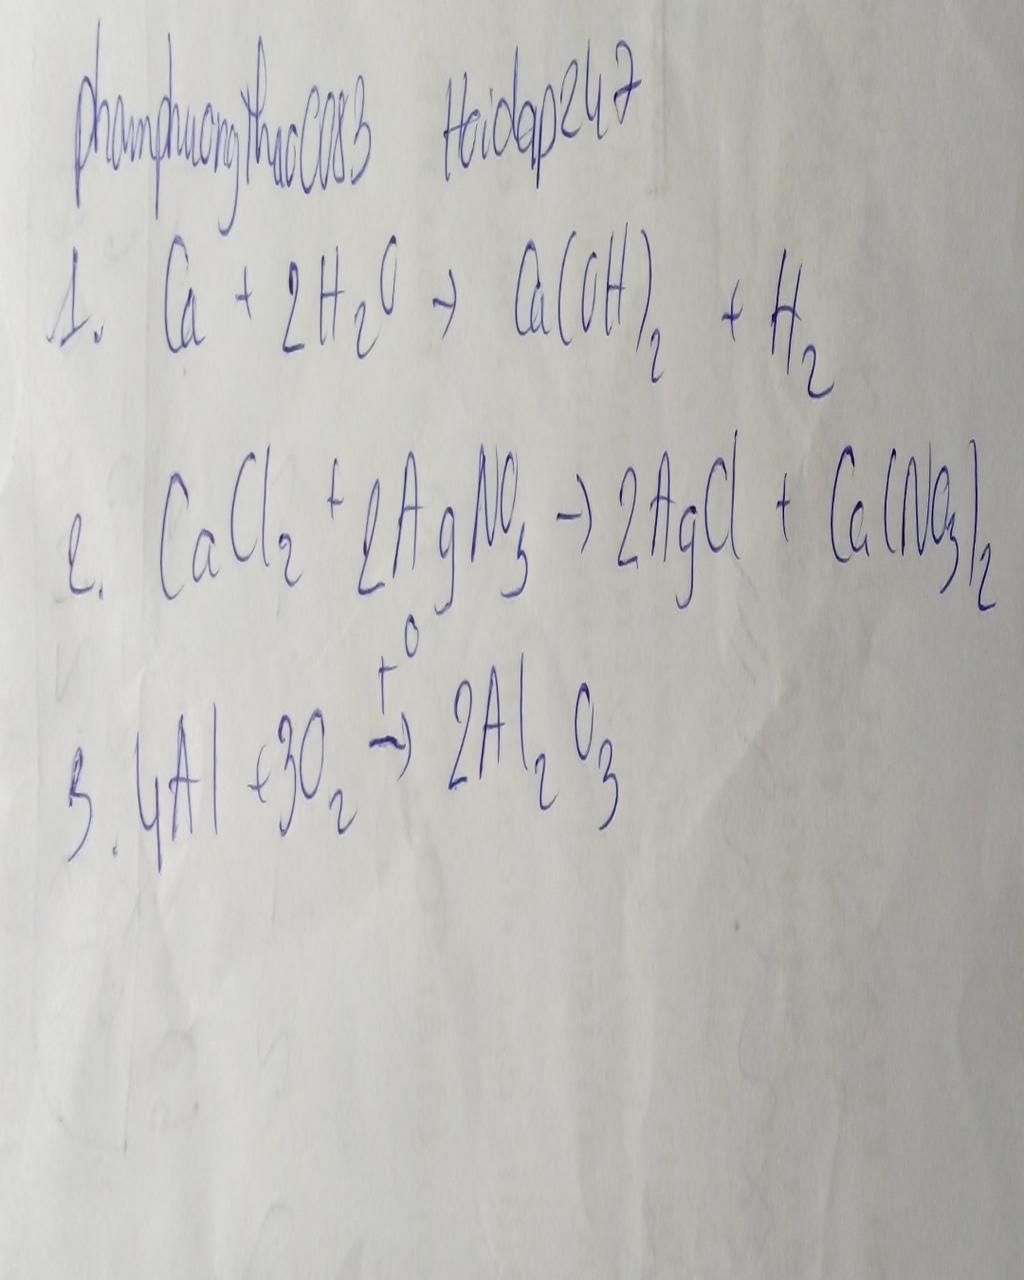 phamphuongthao0083 Hoidap247
1. Ca + 2H₂O → Ca(OH)₂ + H₂
2. CaCl₂ + 2AgNO₃ → 2AgCl + Ca(NO₃)₂
3. 4Al + 3O₂ →(t⁰) 2Al₂O₃